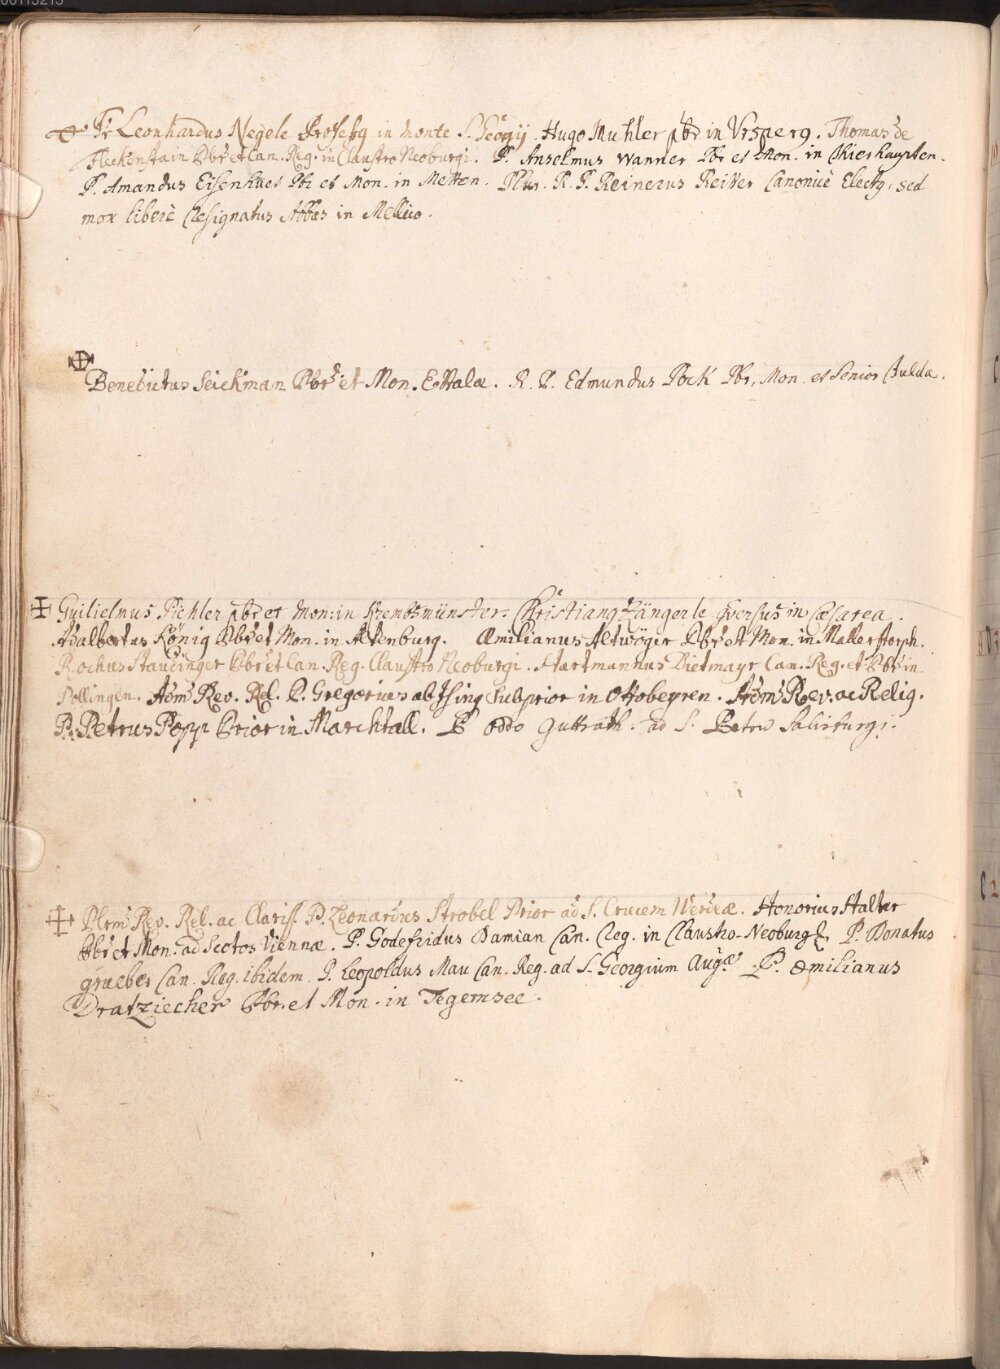 Fr. Leonhardus Negele Professg in monte S. Georgij. Hugo Muhler pbr in Ursperg. Thomas de
Fleckenstain Pbr et Can. Reg. in Claustro Neoburgi. P. Anselmus Wanner Pbr et Mon. in Thierhaupten.
P. Amandus Eisenhuet Pbr et Mon. in Metten. Plur. R. P. Reinerus Reitter Canonicè Electg, sed
mox liberè resignatus Abbas in Mellico.
Benedictus Seickman Pbr et Mon. Ettalæ. R. P. Edmundus Pock Pbr, Mon. et Senior Fulda.
Guilielmus Pichler pbr et Mon: in Krembsmünster. Christiang Zängerle Conversus in Cæsarea.
Adalbertus König Pbr et Mon. in Altenburg. Æmilianus Altwöger Pbr et Mon. in Mallerstorph.
Rochus Staudinger Pbr et Can. Reg. Claustro Neoburgi. Hartmannus Dietmayr Can. Reg. et Pbr in
Pollingen. Adm Rev. Rel. P. Gregorius abtsing Subprior in Ottobeyren. Adm Rev. ac Relig.
P. Petrus Popp Prior in Marchtall. P. Oddo Guttrath. ad S. Petru Salisburgi.
Plrm Rev. Rel. ac Clariss. P. Leonardus Strobel Prior ad S. Crucem Werdeæ. Honorius Halter
Pbr et Mon. ad Scotos Viennæ. P. Godefridus Damian Can. Reg. in Claustro-Neoburg. P. Donatus
grueber Can. Reg. ibidem. P. Leopoldus Mau Can. Reg. ad S. Georgium Augæ. P. Æmilianus
Dratziecher Pbr. et Mon. in Tegernsee.